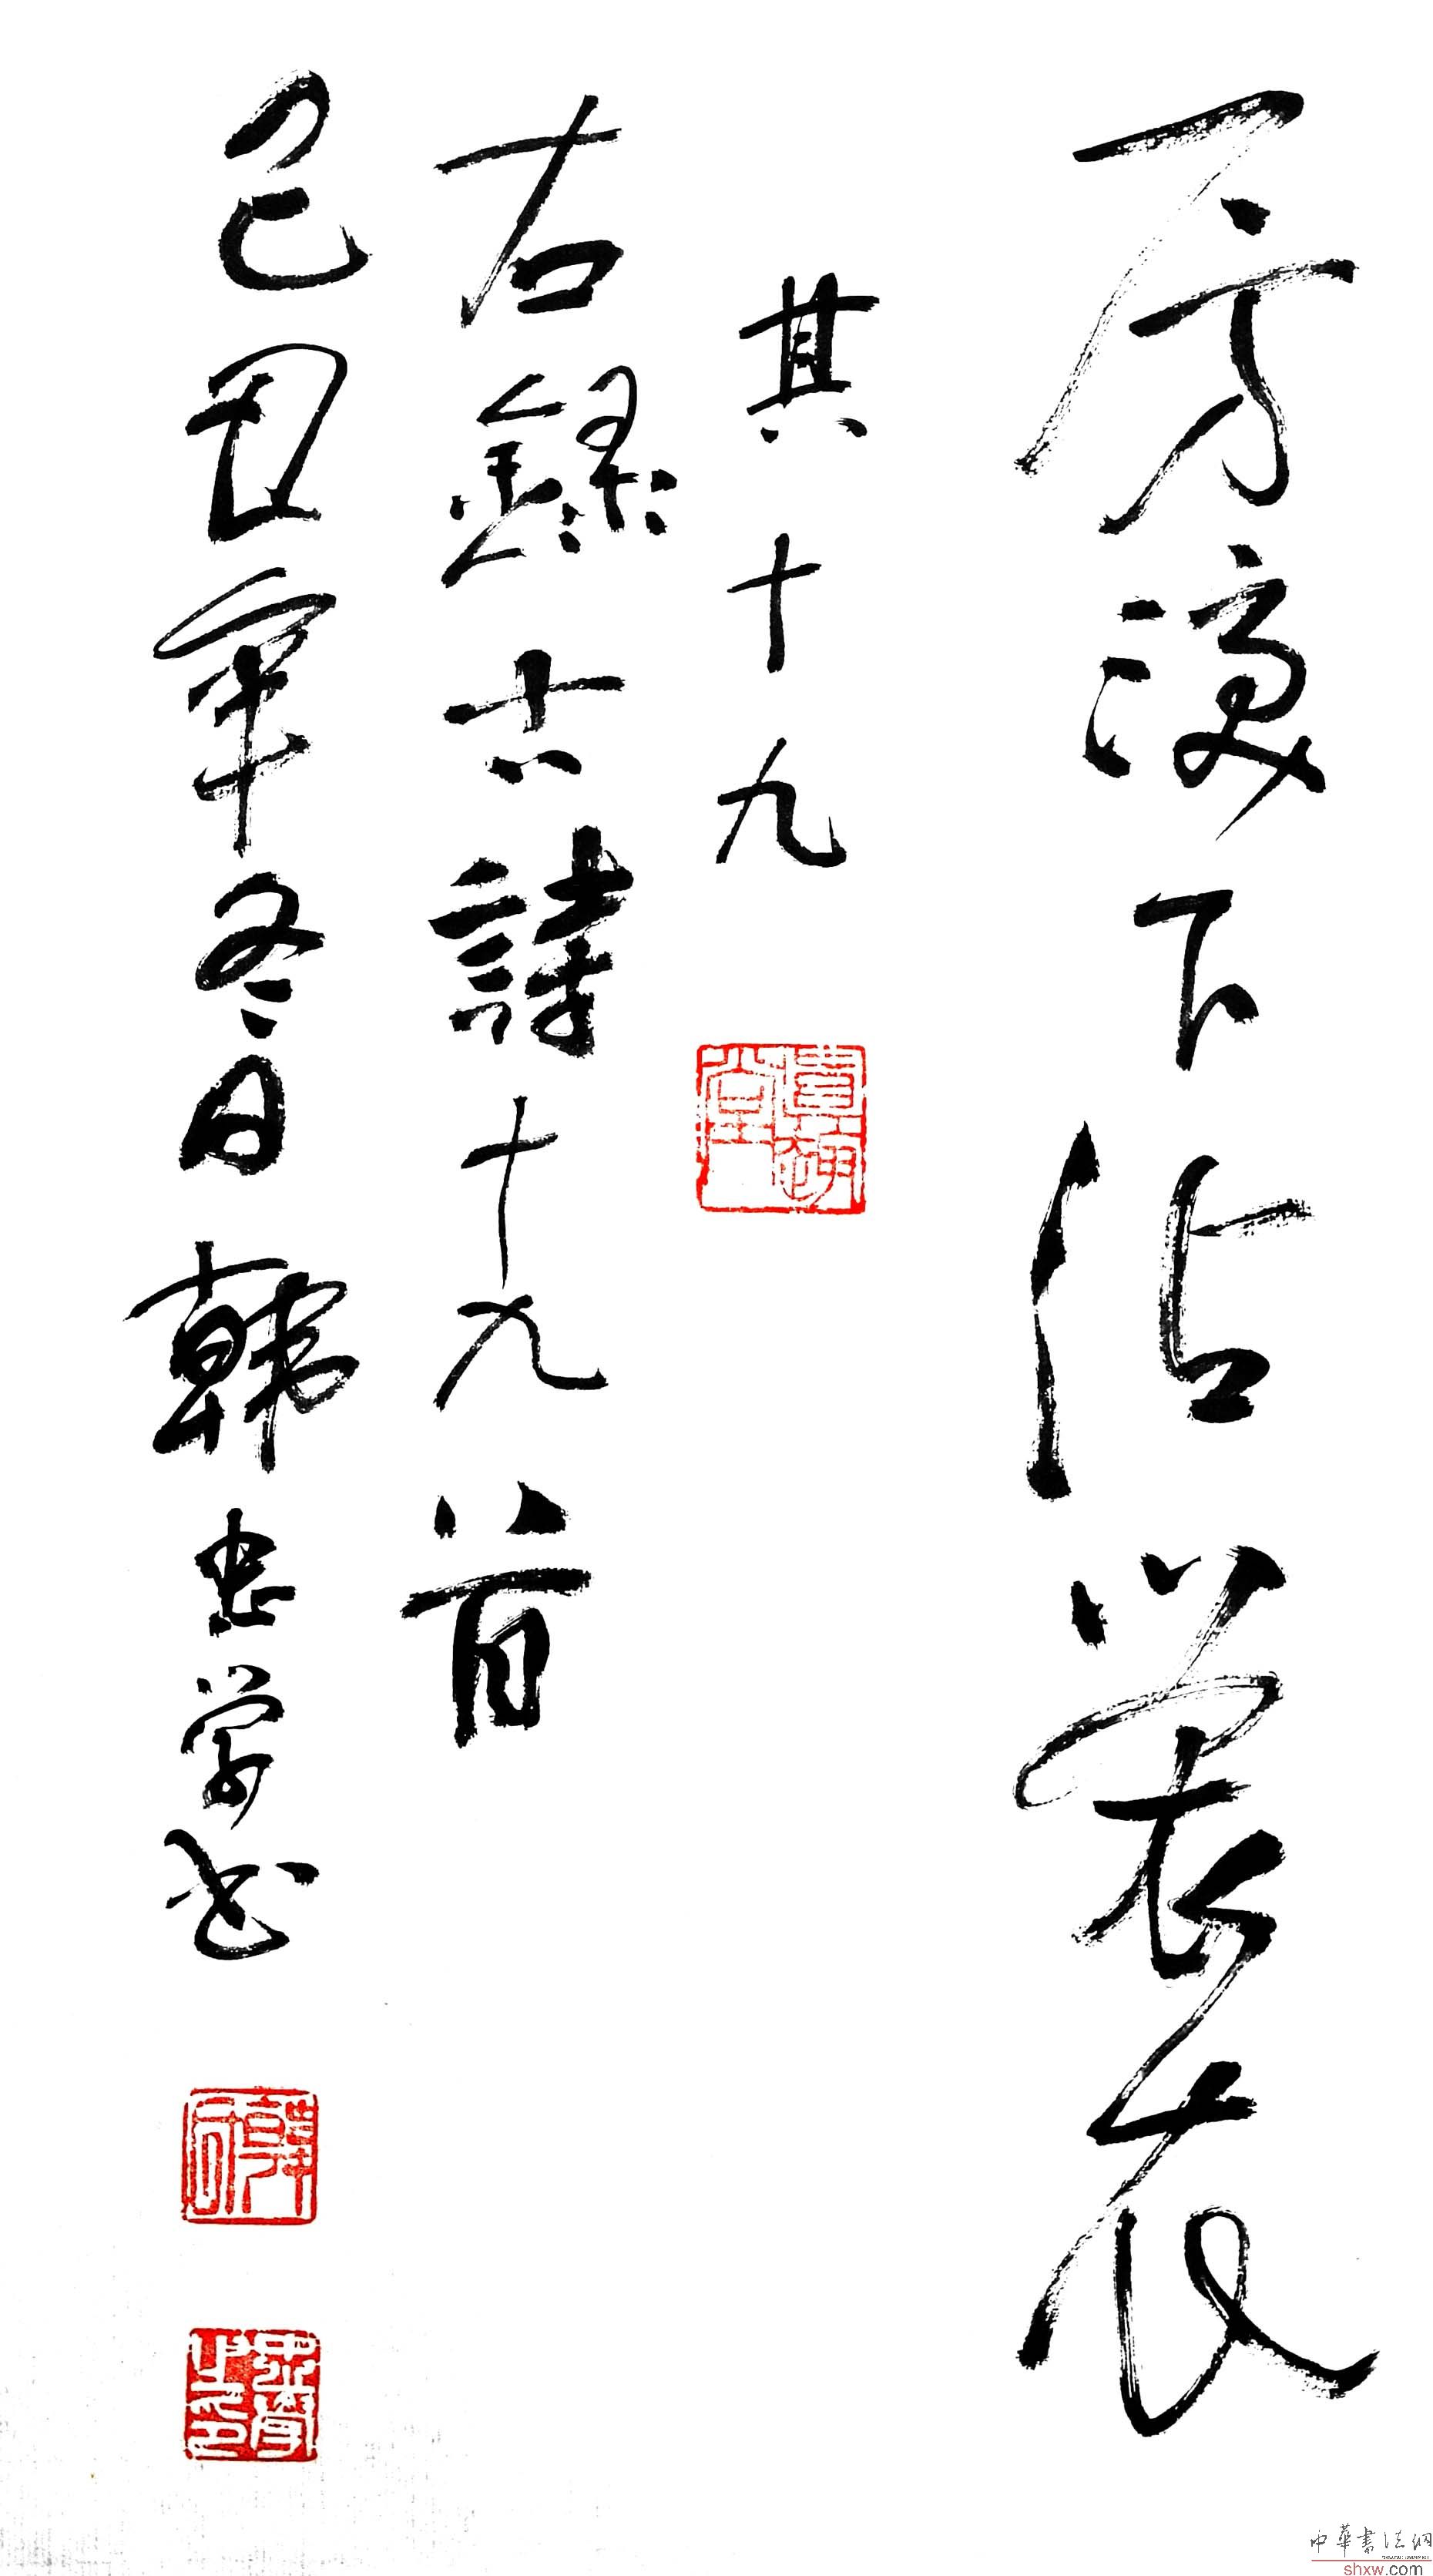 房淚下沾裳衣
其十九
右錄古詩十九首
己丑年冬日韓忠學書
忠學之印
中華書法網
shxw.com